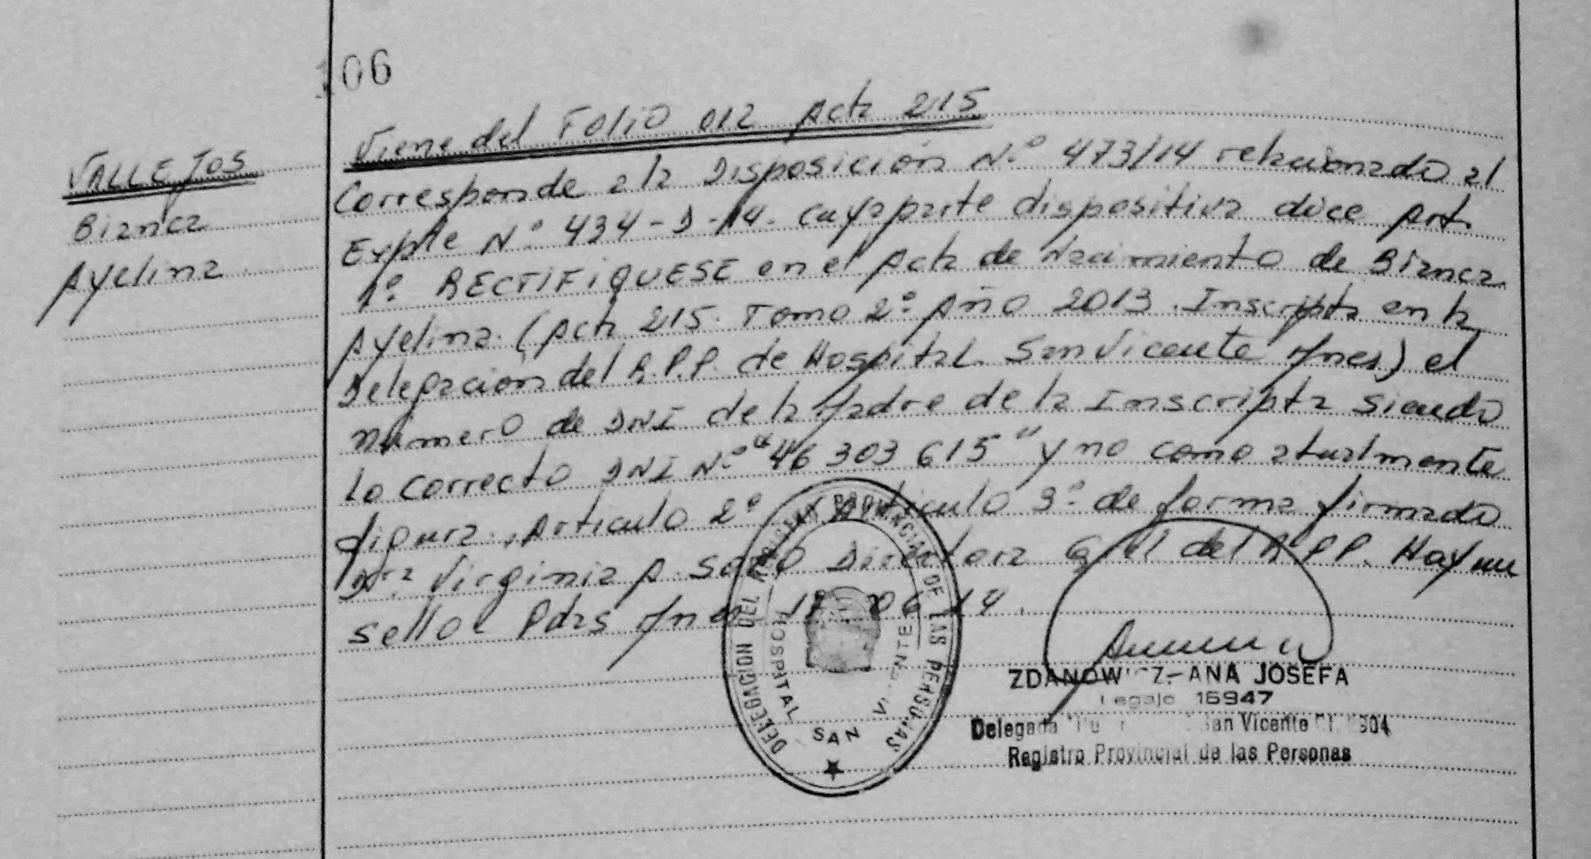 106
Viene del Folio 012 Acta 215
VALLEJOS
Bianca
Ayelina
Corresponde a la Disposición N.º 473/14 relacionado al
Expte Nº 434-D-14. cuya parte dispositiva dice Art.
1º RECTIFIQUESE en el Acta de Nacimiento de Bianca
Ayelina. (Acta 215. Tomo 2º Año 2013. Inscripta en la
Delegación del R.P.P. de Hospital San Vicente Mnes) el
numero de DNI de la Madre de la Inscripta siendo
lo correcto DNI Nº "46 303 615" y no como atualmente
figura. Articulo 2º y Articulo 3º de forma firmado
Dra Virginia A. Soto Directora Gral del R.P.P. Hay un
sello Pdas Mnes 06 14.
DELEGACION DEL REGISTRO PROVINCIAL DE LAS PERSONAS
HOSPITAL SAN VICENTE
ZDANOWICZ - ANA JOSEFA
Legajo 15947
Delegada San Vicente
Registro Provincial de las Personas